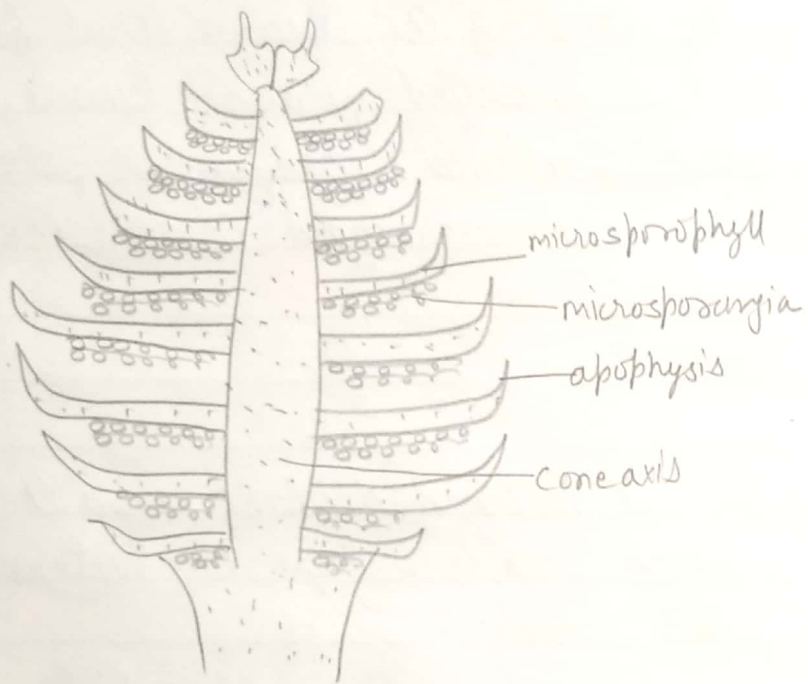 microsporophyll
microsporangia
apophysis
cone axis